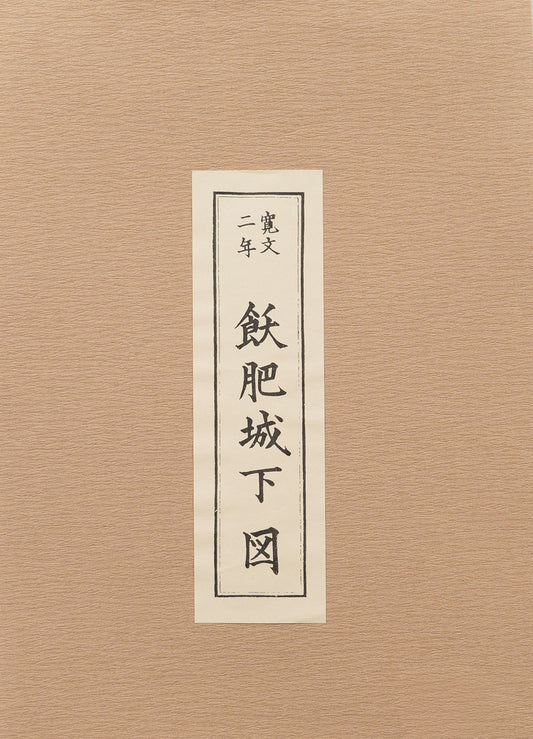 寛文
二年
飫肥城下図